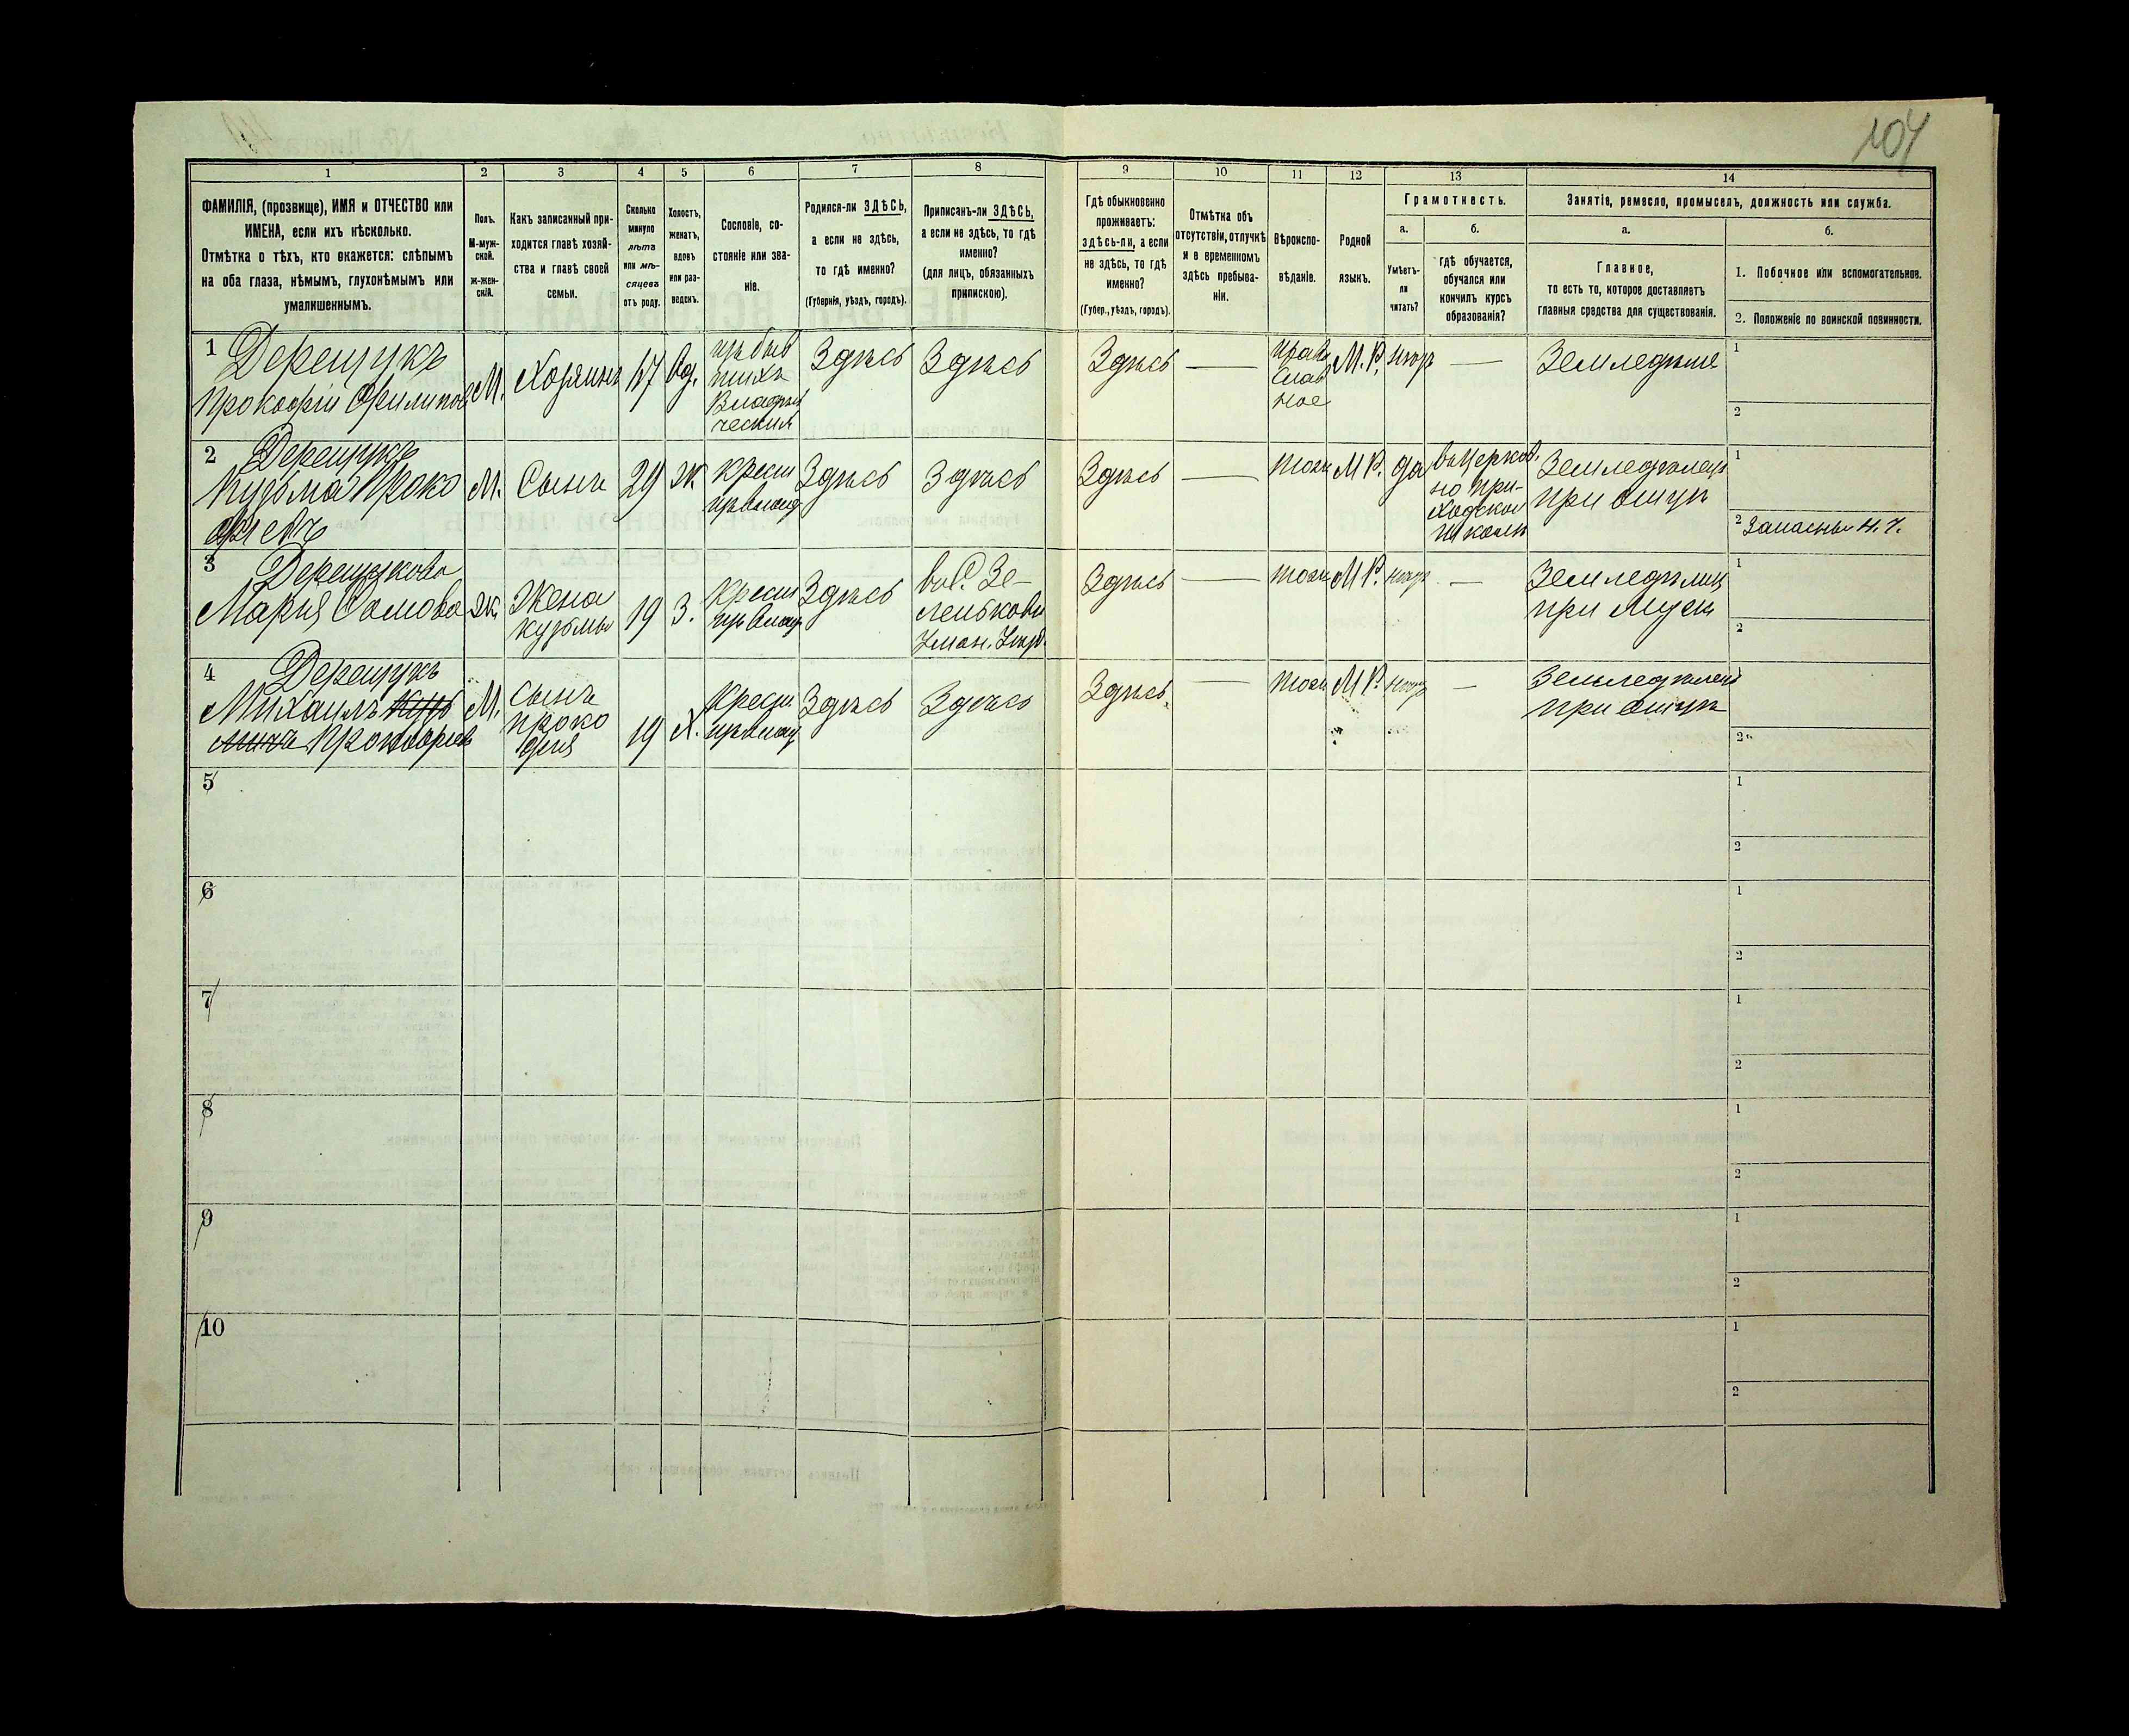 104
1
2
3
4
5
6
7
8
9
10
11
12
13
14
ФАМИЛІЯ, (прозвище), ИМЯ и ОТЧЕСТВО или
ИМЕНА, если ихъ нѣсколько.
Отмѣтка о тѣхъ, кто окажется: слѣпымъ
на оба глаза, нѣмымъ, глухонѣмымъ или
умалишеннымъ.
Полъ.
М-муж-
ской.
ж-жен-
скій.
Какъ записанный при-
ходится главѣ хозяй-
ства и главѣ своей
семьи.
Сколько
минуло
лѣтъ
или мѣ-
сяцевъ
отъ роду.
Холостъ,
женатъ,
вдовъ
или раз-
веденъ.
Сословіе, со-
стояніе или зва-
ніе.
Родился-ли ЗДѢСЬ,
а если не здѣсь,
то гдѣ именно?
(Губернія, уѣздъ, городъ).
Приписанъ-ли ЗДѢСЬ,
а если не здѣсь, то гдѣ
именно?
(для лицъ, обязанныхъ
припискою).
Гдѣ обыкновенно
проживаетъ:
здѣсь-ли, а если
не здѣсь, то гдѣ
именно?
(Губер., уѣздъ, городъ).
Отмѣтка объ
отсутствіи, отлучкѣ
и в временномъ
здѣсь пребыва-
ніи.
Вѣроиспо-
вѣданіе.
Родной
языкъ.
Грамотность.
а.
Умѣетъ-
ли
читать?
б.
гдѣ обучается,
обучался или
кончилъ курсъ
образованія?
Занятіе, ремесло, промыселъ, должность или служба.
а.
Главное,
то есть то, которое доставляетъ
главныя средства для существованія.
б.
1. Побочное или вспомогательное.
2. Положеніе по воинской повинности.
1
Дерещукъ
Прокофій Филипов
М.
Хозяинъ
Вд.
Здѣсь
Здѣсь
Здѣсь
—
Прав
слав
ное
М. Р.
нѣтъ
—
Земледѣле
1
2
2
Дерещукъ
Кузьма Проко
фіевъ
М.
Сынъ
29
Ж
Крест
Здѣсь
Здѣсь
Здѣсь
—
тоже
М Р.
да
въ Церков.
но при-
ходской
школѣ
Земледѣлец
при отцѣ
1
2 Запасный Н. Ч.
3
Дерещукова
Марья
Ж
Жена
Кузьмы
19
З.
Крест
Здѣсь
въ С. Зе-
леньковѣ
Уман. Уѣзд.
Здѣсь
—
тоже
М Р.
нѣтъ
—
Земледѣлиц
при Мужѣ
1
2
4
Дерещукъ
Михаилъ
Прокофіев
М.
Сынъ
Проко
фія
19
Х.
Крест
Здѣсь
Здѣсь
Здѣсь
—
тоже
М Р.
нѣтъ
—
Земледѣлец
при отцѣ
1
2
5
1
2
6
1
2
7
1
2
8
1
2
9
1
2
10
1
2